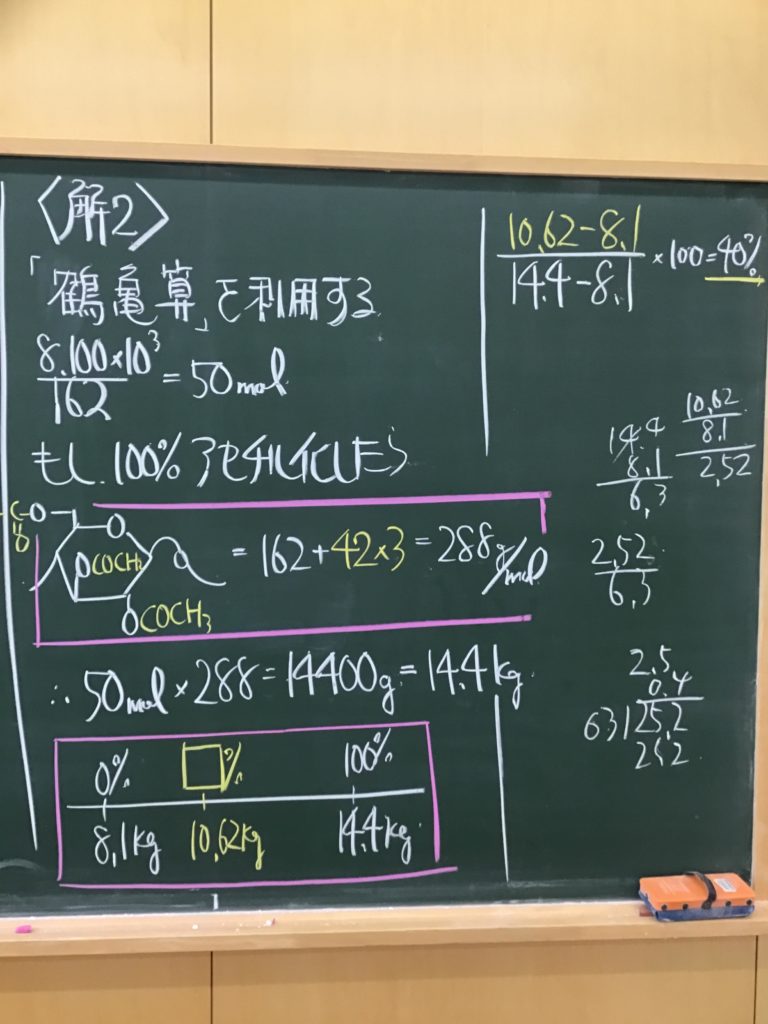 〈解2〉
「鶴亀算」を利用する
8.100×10³/162 = 50mol
もし、100%アセチル化したら
C-O O
O
OCOCH₃ O = 162+42×3 = 288g/mol
OCOCH₃
∴ 50mol×288=14400g=14.4kg
0% □% 100%
8.1kg 10.62kg 14.4kg
10.62-8.1/14.4-8.1 ×100=40%
10.62
8.1
2.52
14.4
8.1
6.3
2.52
6.3
2.5
0.4
63)25.2
252